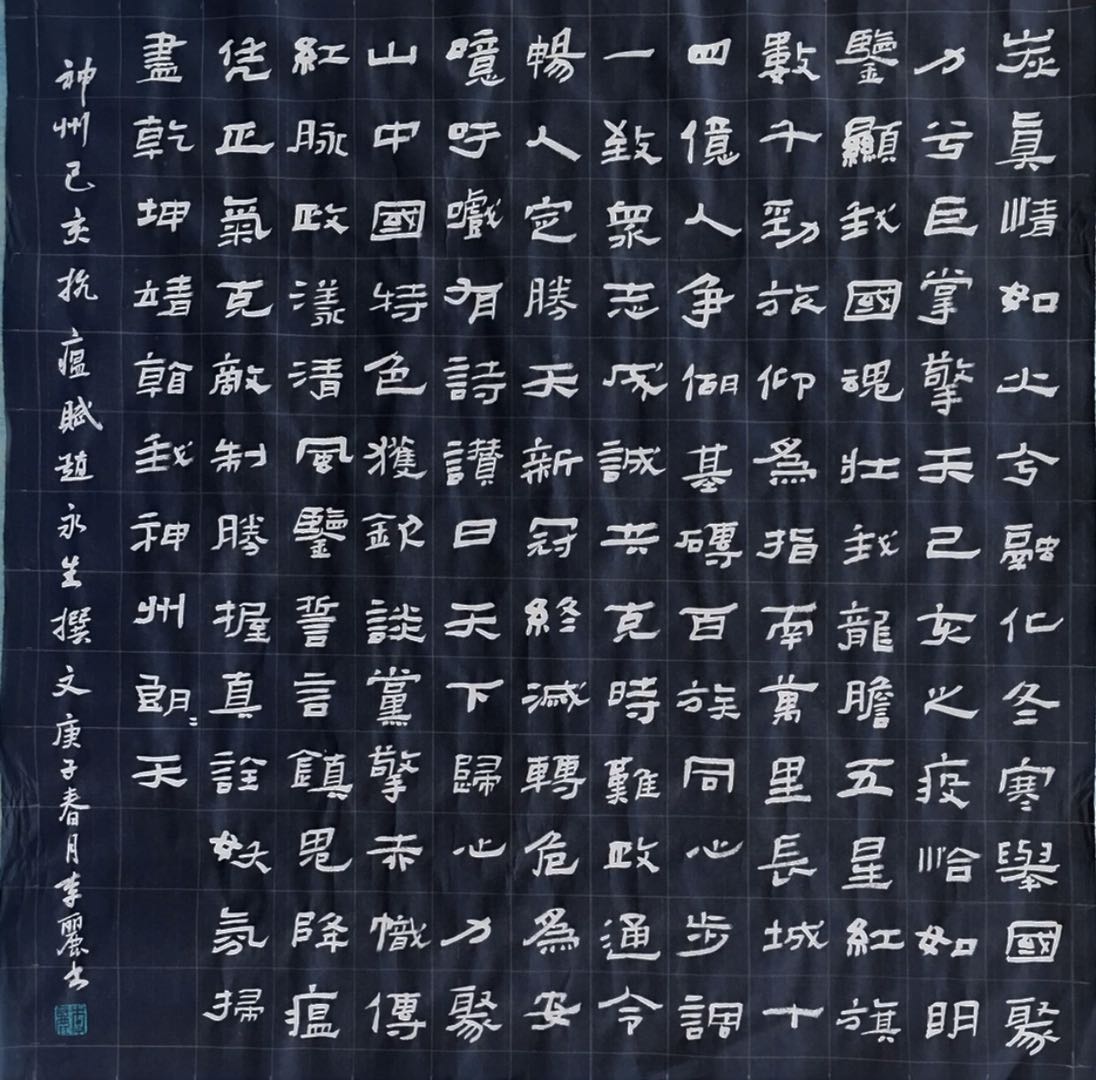 炭眞情如火兮融化冬寒舉國聚
力兮巨掌擎天己亥之疫恰如明
鑒顯我國魂壯我龍膽五星紅旗
數千勁旅仰爲指南萬里長城十
四億人爭做基磚百族同心步調
一致衆志成誠共克時難政通令
暢人定勝天新冠終滅轉危爲安
噫吁嚱有詩讃曰天下歸心力聚
山中國特色獲欽談黨擎赤幟傳
紅脉政漾清風鑒誓言鎮鬼降瘟
凭正氣克敵制勝握真詮妖氛掃
盡乾坤靖我神州朗〻天
神州己亥抗瘟賦趙永生撰文庚子春月李麗书